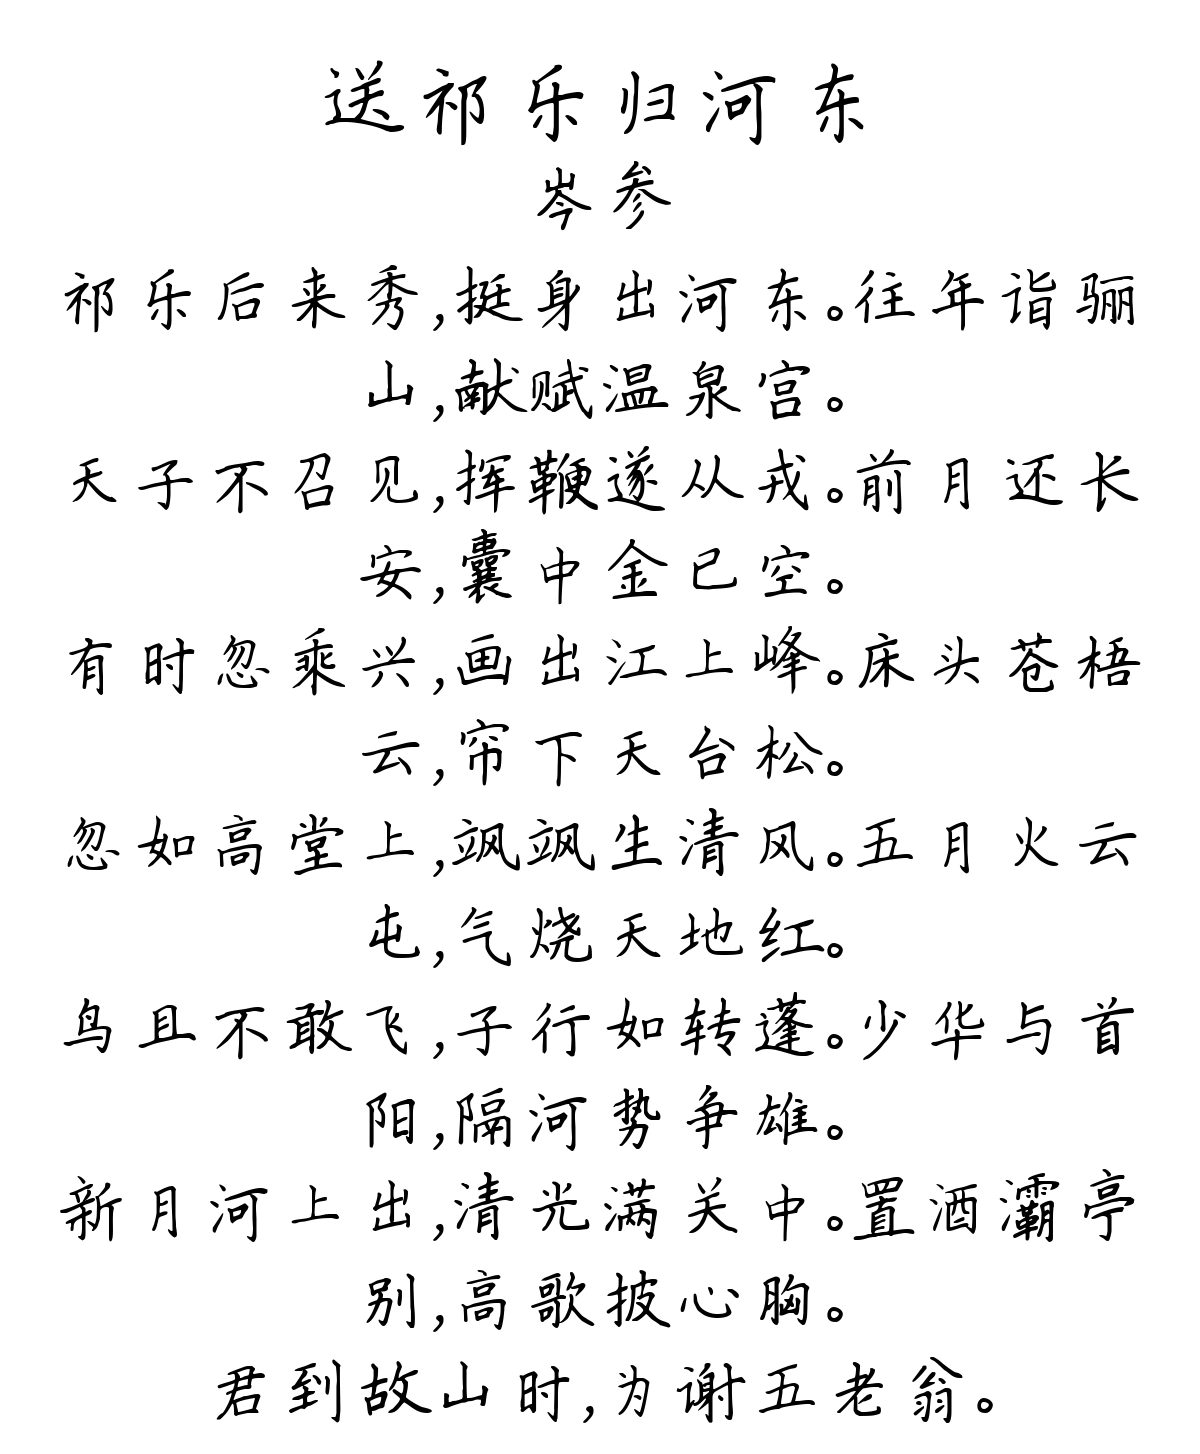 送祁乐归河东
岑参
祁乐后来秀,挺身出河东。往年诣骊
山,献赋温泉宫。
天子不召见,挥鞭遂从戎。前月还长
安,囊中金已空。
有时忽乘兴,画出江上峰。床头苍梧
云,帘下天台松。
忽如高堂上,飒飒生清风。五月火云
屯,气烧天地红。
鸟且不敢飞,子行如转蓬。少华与首
阳,隔河势争雄。
新月河上出,清光满关中。置酒灞亭
别,高歌披心胸。
君到故山时,为谢五老翁。